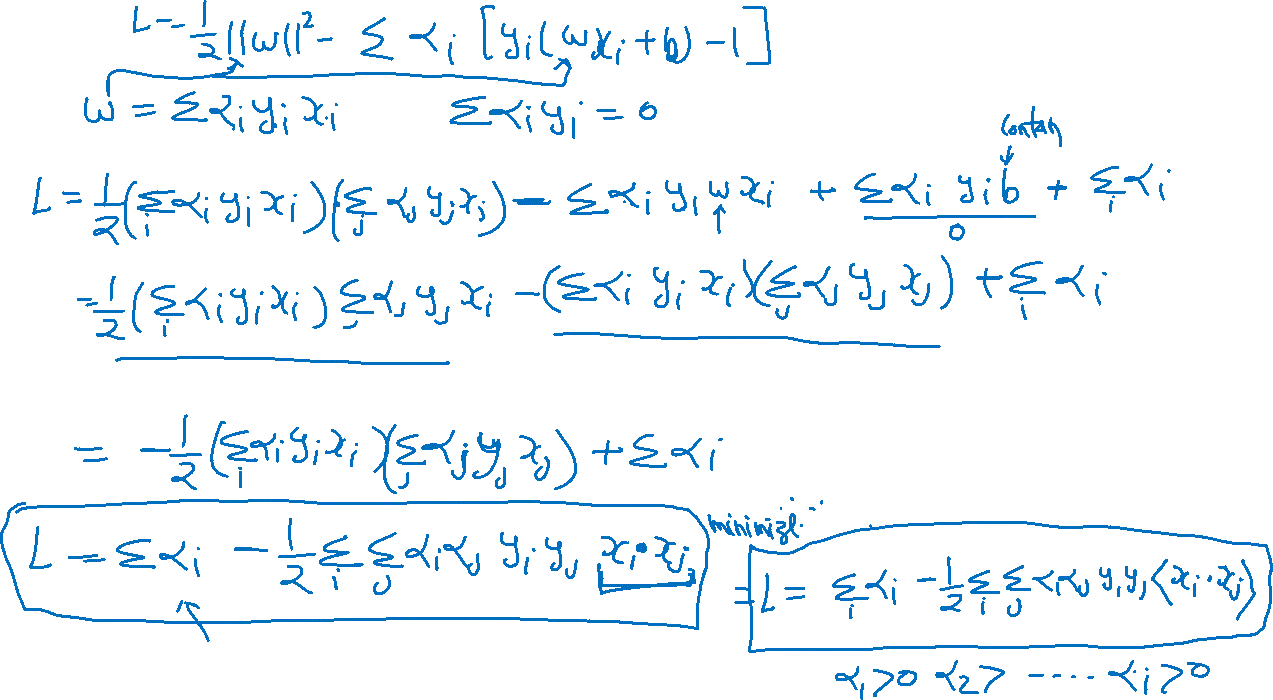 L = 1/2 ||w||² - Σ αi [yi(wxi + b) - 1]
w = Σ αi yi xi    Σ αi yi = 0
contan
L = 1/2 (Σi αi yi xi)(Σj αj yj xj) - Σ αi yi w xi + Σ αi yi b + Σi αi
0
= 1/2 (Σi αi yi xi) Σj αj yj xi - (Σ αi yi xi)(Σj αj yj xj) + Σi αi
= -1/2 (Σi αi yi xi)(Σj αj yj xj) + Σ αi
L = Σ αi - 1/2 Σi Σj αi αj yi yj xi • xj
minimize...
= L = Σi αi - 1/2 Σi Σj αi αj yi yj <xi • xj>
α1 > 0 α2 > ----- αi > 0